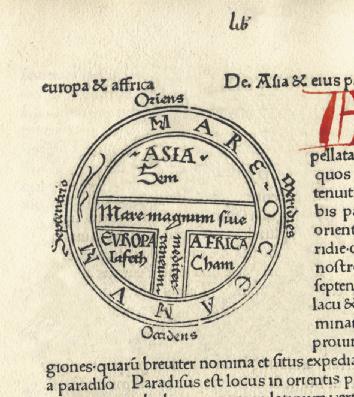 lib
europa & affrica
De. Asia & eius p
Oriens
MARE OCCEANVM
Septentrio
Meridies
ASIA
Sem
Mare magnum siue
EVROPA
Iafeth
mediter
raneum
AFRICA
Cham
Occidens
pellata
quos
tenuit
bis p
orient
ridie·
nostr
septen
lacu &
minat
giones·quarū breuiter nomina et situs expedia
a paradiso Paradisus est locus in orientis p